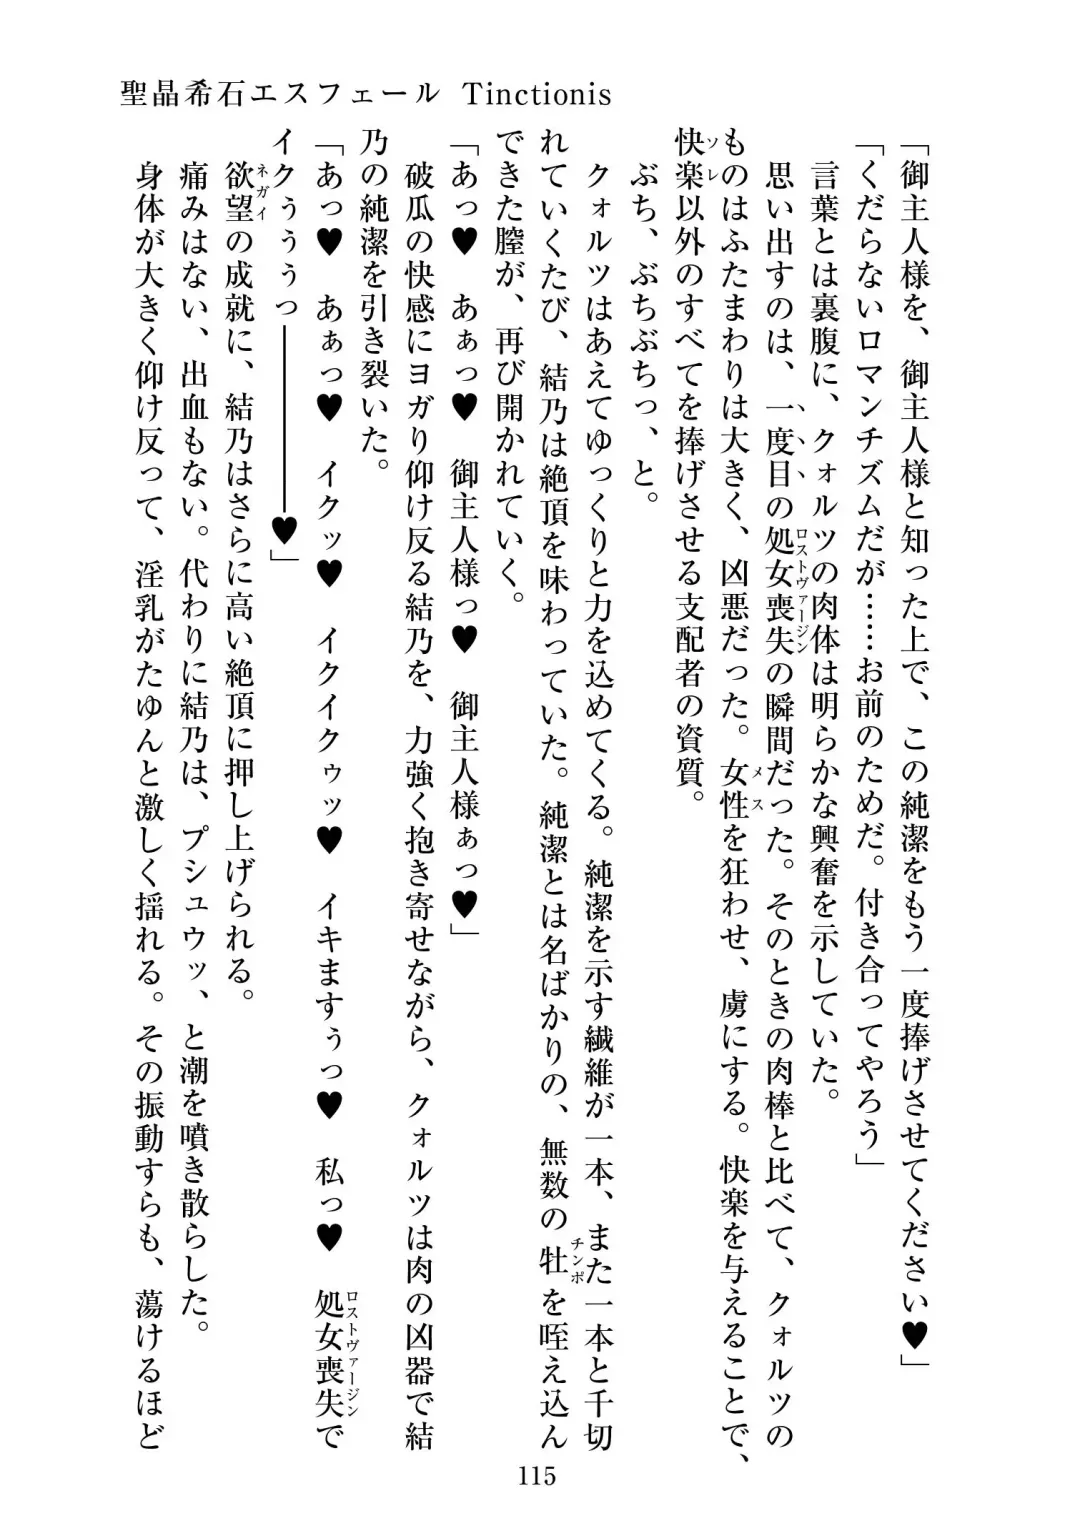 聖晶希石エスフェール Tinctionis
「御主人様を、御主人様と知った上で、この純潔をもう一度捧げさせてください♥」
「くだらないロマンチズムだが……お前のためだ。付き合ってやろう」
言葉とは裏腹に、クォルツの肉体は明らかな興奮を示していた。
思い出すのは、一度目の処女喪失の瞬間だった。そのときの肉棒と比べて、クォルツの
ロストヴァージン
ものはふたまわりは大きく、凶悪だった。女性を狂わせ、虜にする。快楽を与えることで、
メス
快楽以外のすべてを捧げさせる支配者の資質。
ソレ
ぶち、ぶちぶちっ、と。
クォルツはあえてゆっくりと力を込めてくる。純潔を示す繊維が一本、また一本と千切
れていくたび、結乃は絶頂を味わっていた。純潔とは名ばかりの、無数の牡を咥え込ん
チンポ
できた膣が、再び開かれていく。
「あっ♥　あぁっ♥　御主人様っ♥　御主人様ぁっ♥」
破瓜の快感にヨガり仰け反る結乃を、力強く抱き寄せながら、クォルツは肉の凶器で結
乃の純潔を引き裂いた。
「あっ♥　あぁっ♥　イクッ♥　イクイクゥッ♥　イキますぅっ♥　私っ♥　処女喪失で
ロストヴァージン
イクぅぅぅっ――――♥」
欲望の成就に、結乃はさらに高い絶頂に押し上げられる。
ネガイ
痛みはない、出血もない。代わりに結乃は、プシュウッ、と潮を噴き散らした。
身体が大きく仰け反って、淫乳がたゆんと激しく揺れる。その振動すらも、蕩けるほど
115